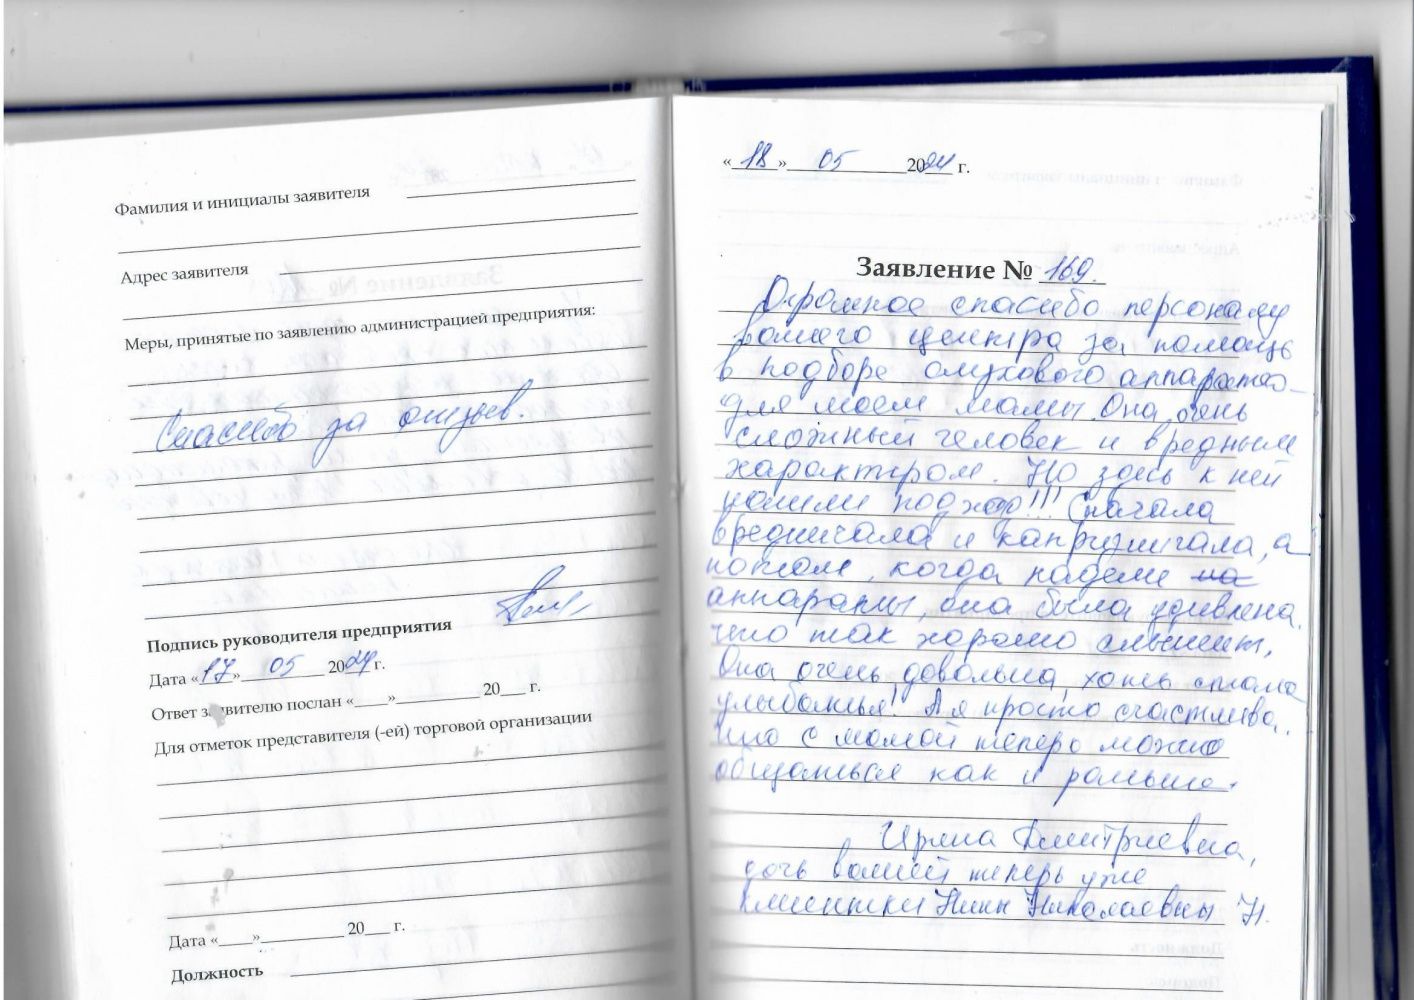 Фамилия и инициалы заявителя
Адрес заявителя
Меры, принятые по заявлению администрацией предприятия:
Спасибо за отзыв.
Подпись руководителя предприятия
Дата «17» 05 2024 г.
Ответ заявителю послан «____»__________ 20___ г.
Для отметок представителя (-ей) торговой организации
Дата «____»__________ 20___ г.
Должность
«18» 05 2024 г.
Заявление № 169.
Огромное спасибо персоналу
вашего центра за помощь
в подборе слухового аппарата
для моей мамы. Она очень
сложный человек и вредным
характером. Но здесь к ней
нашли подход!!! Сначала
вредничала и капризничала, а
потом, когда надели на
аппараты, она была удивлена,
что так хорошо слышит.
Она очень довольна, хоть стала
улыбаться! А я просто счастлива,
что с мамой теперь можно
общаться как и раньше.
Ирина Дмитриевна,
дочь вашей теперь уже
клиентки Нины Николаевны Н.